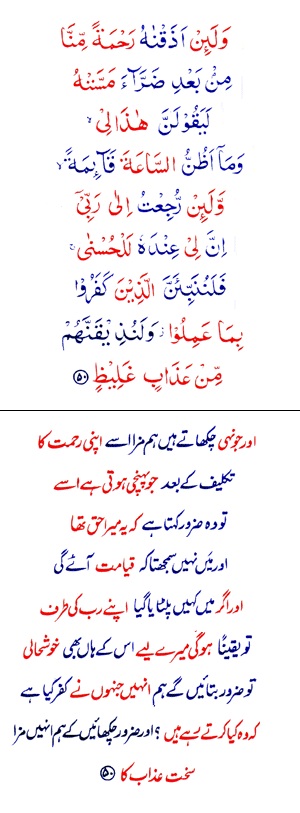 وَلَئِنْ اَذَقْنٰهُ رَحْمَةً مِّنَّا
مِنْۢ بَعْدِ ضَرَّآءَ مَسَّتْهُ
لَيَقُوْلَنَّ هٰذَا لِىْ ۙ
وَمَاۤ اَظُنُّ السَّاعَةَ قَآئِمَةً ۙ
وَّلَئِنْ رُّجِعْتُ اِلٰى رَبِّىْۤ
اِنَّ لِىْ عِنْدَهٗ لَلْحُسْنٰى ۚ
فَلَنُنَبِّئَنَّ الَّذِيْنَ كَفَرُوْا
بِمَا عَمِلُوْا ۡ وَلَنُذِيْقَنَّهُمْ
مِّنْ عَذَابٍ غَلِيْظٍ ﴿۵۰﴾
اور جونہی چکھاتے ہیں ہم مزا اسے اپنی رحمت کا
تکلیف کے بعد جو پہنچی ہوتی ہے اسے
تو وہ ضرور کہتا ہے کہ یہ میرا حق تھا
اور میں نہیں سمجھتا کہ قیامت آئے گی
اور اگر میں کہیں پلٹایا گیا اپنے رب کی طرف
تو یقیناً ہوگی میرے لیے اس کے ہاں بھی خوشحالی
تو ضرور بتائیں گے ہم انہیں جنہوں نے کفر کیا ہے
کہ وہ کیا کرتے رہے ہیں ؟ اور ضرور چکھائیں گے ہم انہیں مزا
سخت عذاب کا ﴿۵۰﴾